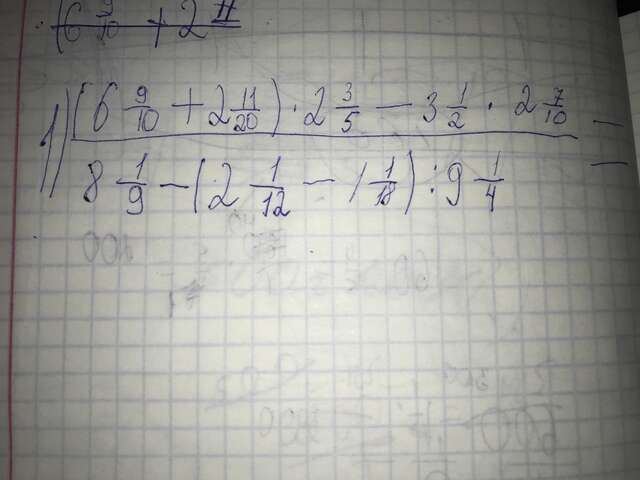 (6 9/10 + 2 11
1) (6 9/10 + 2 11/20) · 2 3/5 − 3 1/2 · 2 7/10 −
8 1/9 − (2 1/12 − 1 1/18) · 9 1/4 −